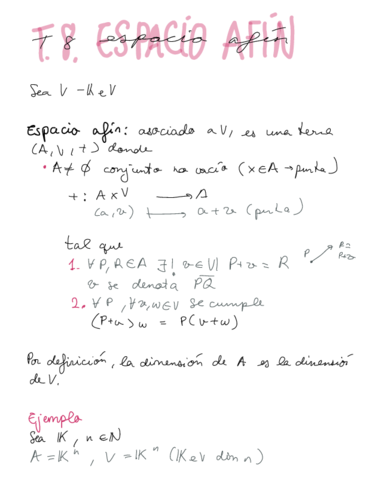 T.8. ESPACIO AFÍN
T 8 espacio afín
Sea V - K eV
Espacio afín: asociado a V, es una terna
(A, V, +) donde
• A ≠ ∅ conjunto no vacío (x ∈ A → punto)
+ : A x V → A
(a, v) ↦ a + v (punto)
tal que
1. ∀ P, R ∈ A ∃! v ∈ V | P + v = R
v se denota PQ
P R =
P+v
2. ∀ P, ∀ v, w ∈ V se cumple
(P+v)w = P(v+w)
Por definición, la dimensión de A es la dimensión
de V.
Ejemplo
Sea K, n ∈ N
A = Kⁿ, V = Kⁿ (K eV dim n)